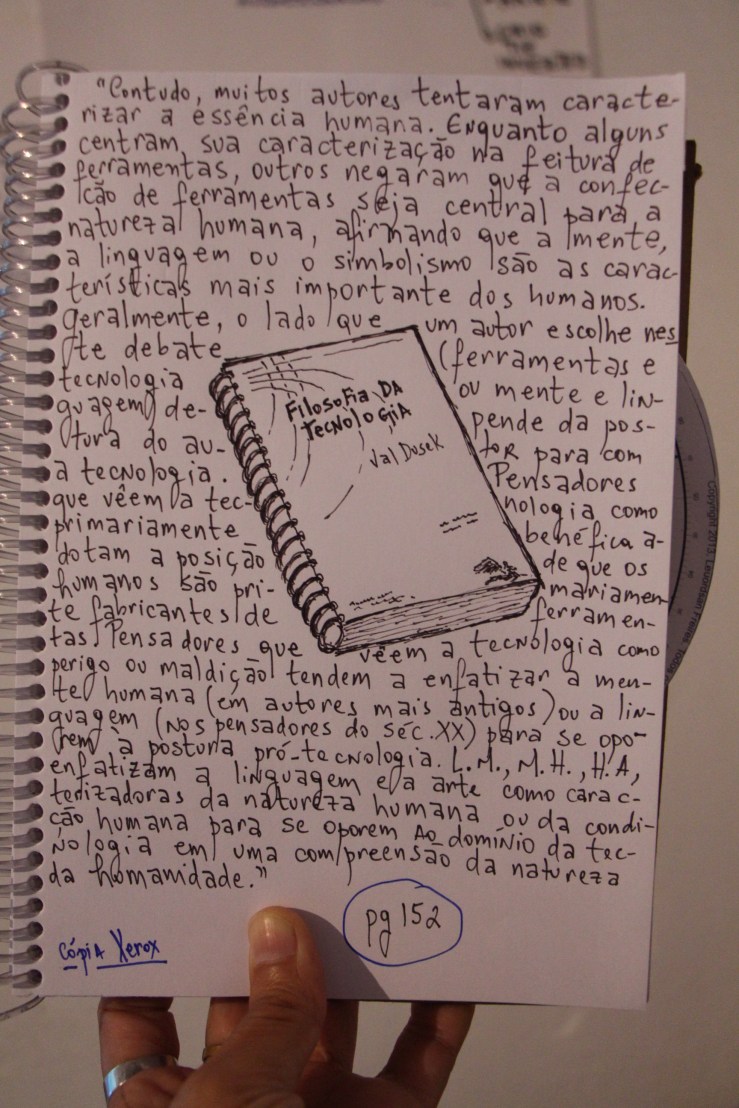 "Contudo, muitos autores tentaram caracte-
rizar a essência humana. Enquanto alguns
centram, sua caracterização na feitura de
ferramentas, outros negaram que a confec-
ção de ferramentas seja central para a
natureza humana, afirmando que a mente,
a linguagem ou o simbolismo são as carac-
terísticas mais importante dos humanos.
geralmente, o lado que um autor escolhe nes
te debate (ferramentas e
tecnologia ou mente e lin-
guagem) de- pende da pos-
tura do au- tor para com
a tecnologia. Pensadores
que vêem a tec- nologia como
primariamente benéfica a-
dotam a posição de que os
humanos são pri- mariamen
te fabricantes de ferramen-
tas. Pensadores que vêem a tecnologia como
perigo ou maldição tendem a enfatizar a men-
te humana (em autores mais antigos) ou a lin-
guagem (nos pensadores do séc. XX) para se opo-
rem à postura pró-tecnologia. L.M., M.H., H.A,
enfatizam a linguagem e/a arte como carac-
terizadoras da natureza humana ou da condi-
ção humana para se oporem ao domínio da tec-
nologia em uma compreensão da natureza
da humanidade."
Filosofia DA
TECNOLOGIA
Val Dusek
pg 152
cópia Xerox
Copyright 2013.